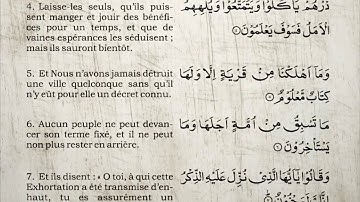 4. Laisse-les seuls, qu'ils puis-
sent manger et jouir des bénéfi-
ces pour un temps, et que de
vaines espérances les séduisent ;
mais ils sauront bientôt.
ذَرْهُمْ يَأْكُلُوا۟ وَيَتَمَتَّعُوا۟ وَيُلْهِهِمُ
الْأَمَلُ فَسَوْفَ يَعْلَمُونَ
5. Et Nous n'avons jamais détruit
une ville quelconque sans qu'il
n'y eût pour elle un décret connu.
وَمَا أَهْلَكْنَا مِنْ قَرْيَةٍ إِلَّا وَلَهَا
كِتَابٌ مَعْلُومٌ
6. Aucun peuple ne peut devan-
cer son terme fixé, et il ne peut
non plus rester en arrière.
مَا تَسْبِقُ مِنْ أُمَّةٍ أَجَلَهَا وَمَا
يَسْتَأْخِرُونَ
7. Et ils disent : « O toi, à qui cette
Exhortation a été transmise d'en-
haut, tu es assurément un
وَقَالُوا يَاأَيُّهَا الَّذِي نُزِّلَ عَلَيْهِ الذِّكْرُ